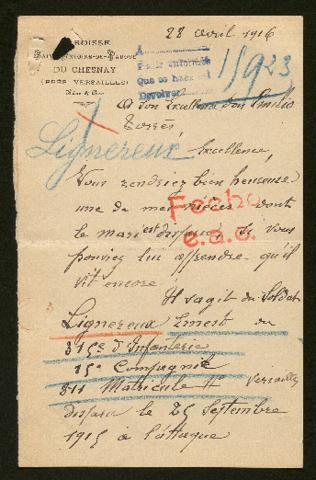 28 avril 1916
PAROISSE
SAINT-ANTOINE-DE-PADOUE
DU CHESNAY
(PRÈS VERSAILLES)
Seine & Oise
A
Que se hace
Devolver
15923
A Son Excellence Don Emilio
Torrès
Lignereux
Excellence,
Vous rendriez bien heureuse
une de mes nièces dont
le mari est disparu si vous
pouviez lui apprendre qu'il
vit encore
Fecho
e.a.c.
Il s'agit du Soldat
Lignereux Ernest du
315e d'Infanterie
15e Compagnie
811 Matricule Versailles
disparu le 25 Septembre
1915 à l'attaque